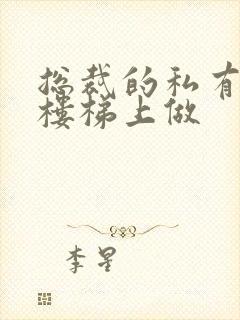 总裁的私有
楼梯上做
李星